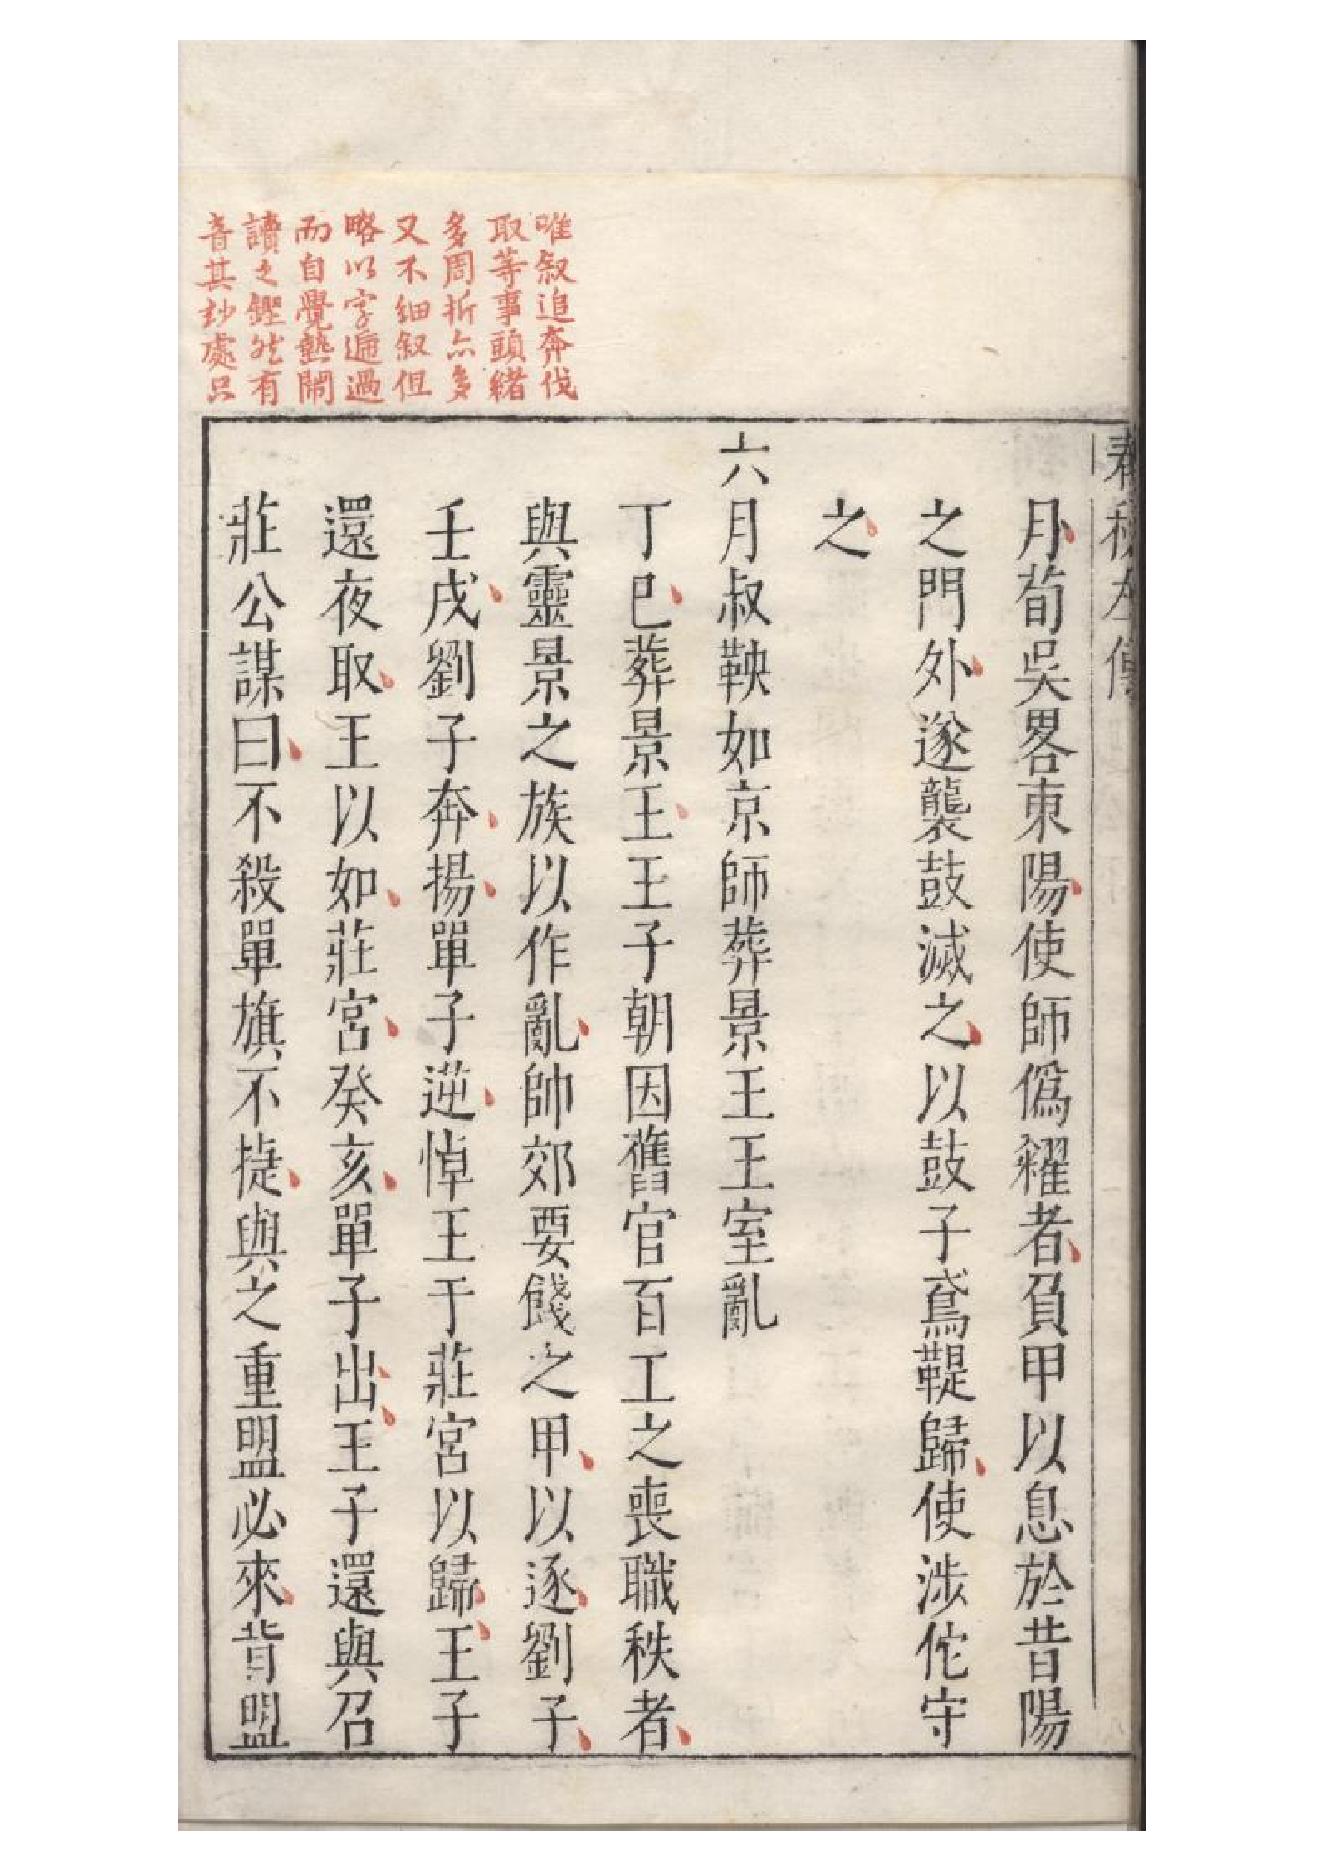 春秋左傳
月荀吳畧東陽使師僞糴者負甲以息於昔陽
之門外遂襲鼓滅之以鼓子鳶鞮歸使涉佗守
之
六月叔鞅如京師葬景王王室亂
丁巳葬景王王子朝因舊官百工之喪職秩者
與靈景之族以作亂帥郊要餞之甲以逐劉子
壬戌劉子奔揚單子逆悼王于莊宮以歸王子
還夜取王以如莊宮癸亥單子出王子還與召
莊公謀曰不殺單旗不捷與之重盟必來背盟
唯叙追奔伐
取等事頭緒
多周折亦多
又不細叙但
略以字遞過
而自覺熱鬧
讀之鏗然有
音其妙處只